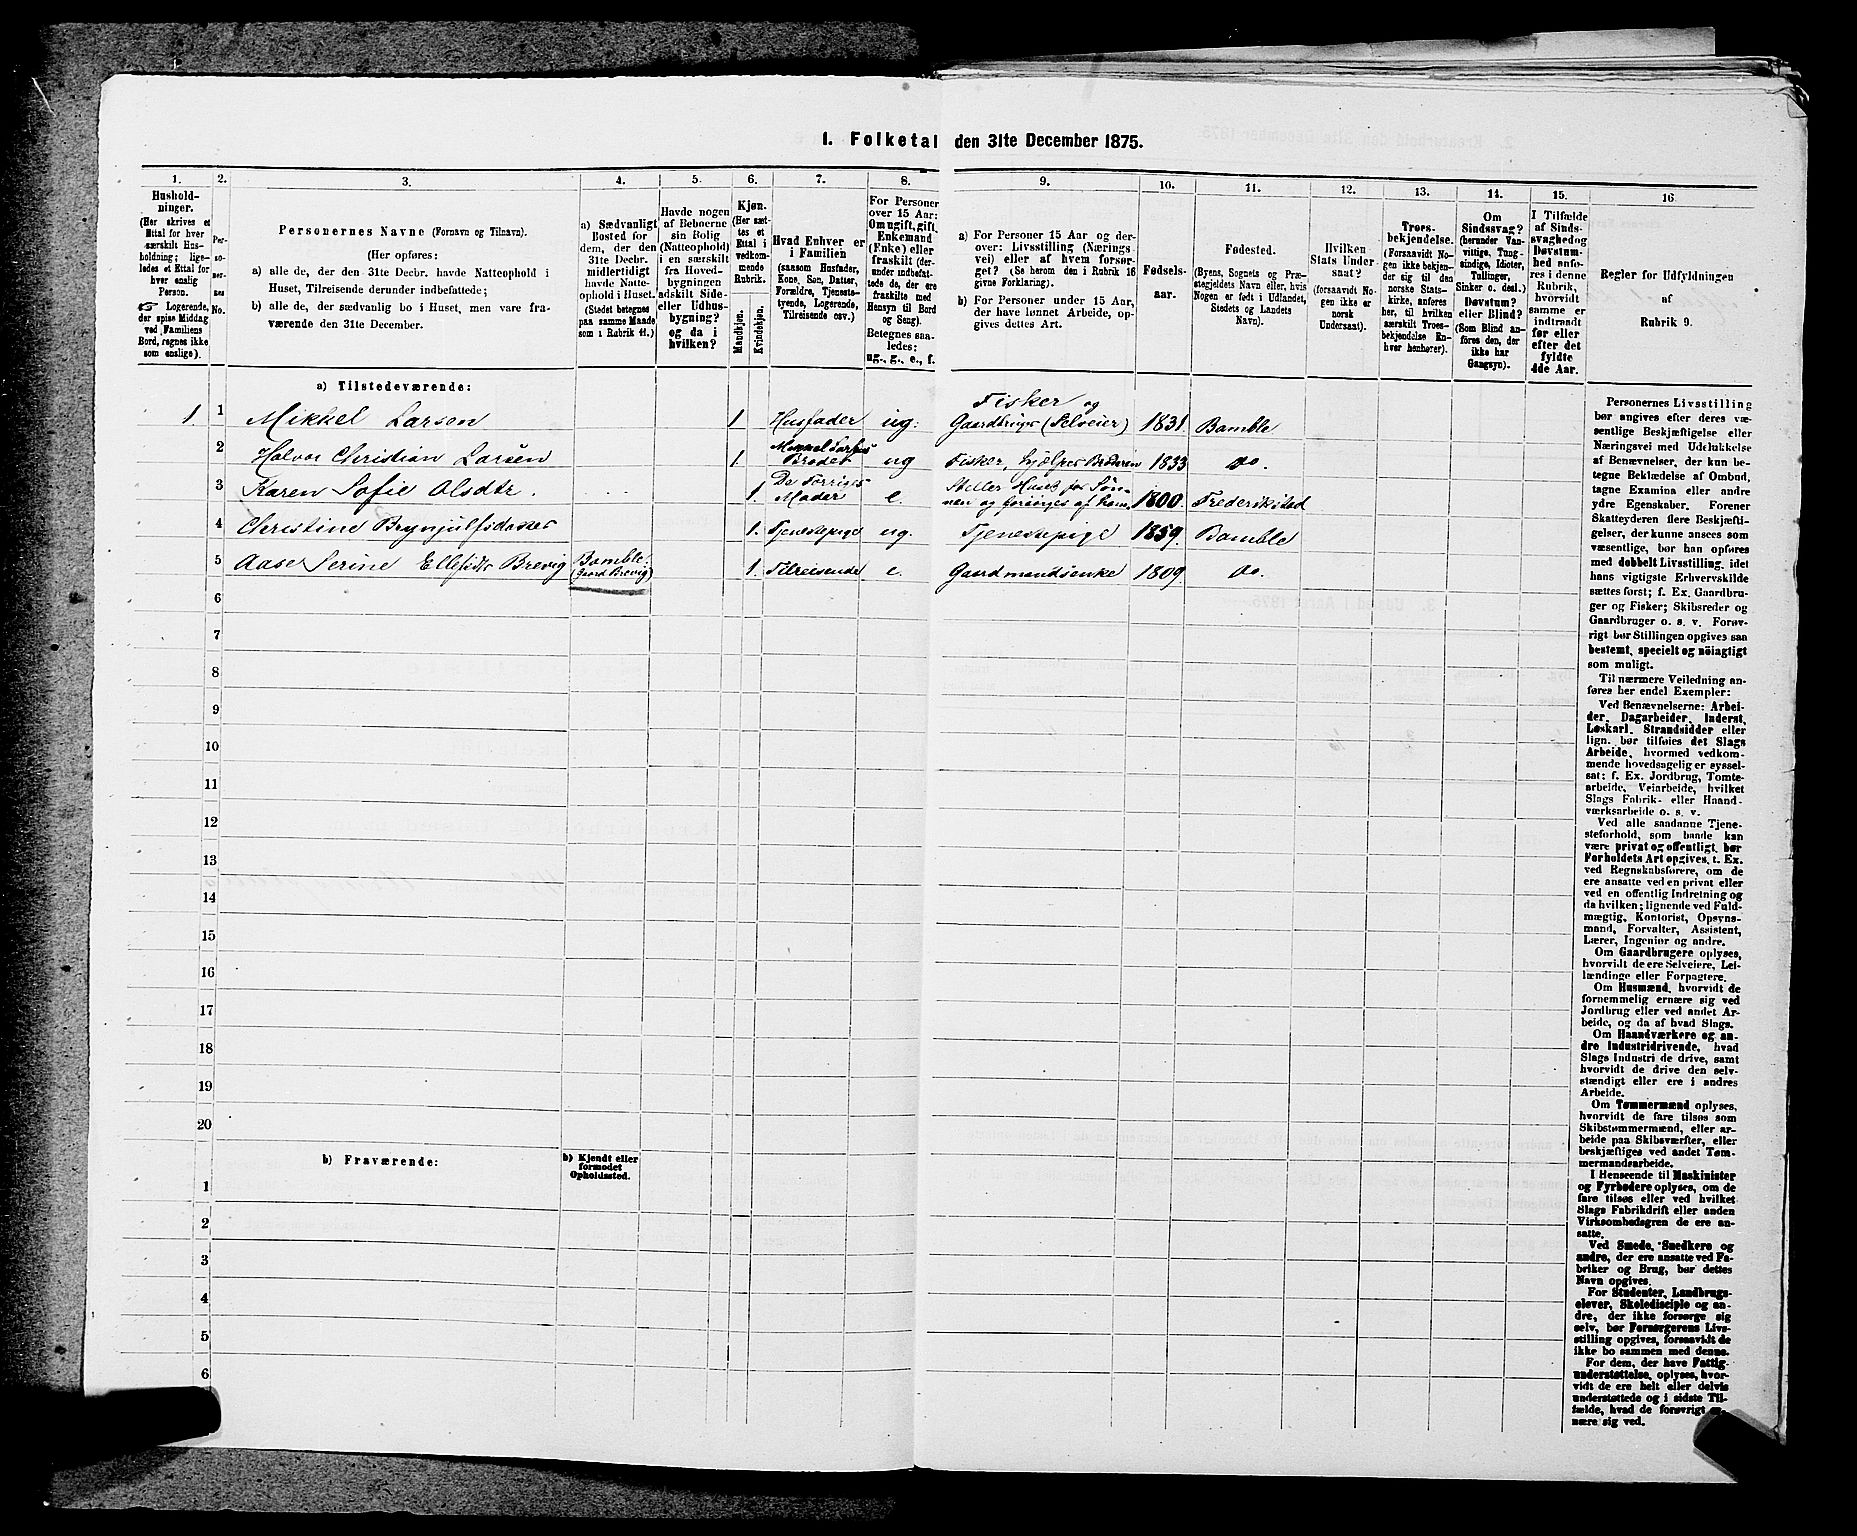 1. Folketal den 31te December 1875.
1.
Hushold-
ninger.
(Her skrives et
Ettal for hver
særskilt Hus-
holdning; lige-
ledes et Ettal for
hver enslig
Person.
☞ Logerende,
der spise Middag
ved Familiens
Bord, regnes ikke
som enslige).
2.
Per-
so-
ner-
nes
No.
3.
Personernes Navne (Fornavn og Tilnavn).
(Her opføres:
a) alle de, der den 31te Decbr. havde Natteophold i
Huset, Tilreisende derunder indbefattede;
b) alle de, der sædvanlig bo i Huset, men vare fra-
værende den 31te December.
4.
a) Sædvanligt
Bosted for
dem, der den
31te Decbr.
midlertidigt
havde Natte-
ophold i Huset.
(Stedet betegnes
paa samme Maade
som i Rubrik 11.)
5.
Havde nogen
af Beboerne
sin Bolig
(Natteophold)
i en særskilt
fra Hoved-
bygningen
adskilt Side-
eller Udhus-
bygning?
og da i
hvilken?
6.
Kjøn.
(Her sæt-
tes et
Ettal i
vedkom-
mende
Rubrik.
Mandkjøn.
Kvindekjøn.
7.
Hvad Enhver er
i Familien
(saasom Husfader,
Kone, Søn, Datter,
Forældre, Tjeneste-
tyende, Logerende,
Tilreisende osv.)
8.
For Personer
over 15 Aar:
Om ugift, gift,
Enkemand
(Enke) eller
fraskilt (der-
under indbefat-
tede de, der ere
fraskilte med
Hensyn til Bord
og Seng).
Betegnes saa-
ledes:
ug., g., e., f.
9.
a) For Personer 15 Aar og der-
over: Livsstilling (Nærings-
vei) eller af hvem forsør-
get? (Se herom den i Rubrik 16
givne Forklaring).
b) For Personer under 15 Aar,
der have lønnet Arbeide, op-
gives dettes Art.
10.
Fødsels-
aar.
11.
Fødested.
(Byens, Sognets og Præ-
stegjeldets Navn eller, hvis
Nogen er født i Udlandet,
Stedets og Landets
Navn).
12.
Hvilken
Stats Under-
saat?
(forsaavidt No-
gen ikke er
norsk
Undersaat).
13.
Troes-
bekjendelse.
(Forsaavidt No-
gen ikke bekjen-
der sig til den
norske Stats-
kirke, anføres
her, til hvilken
særskilt Troes-
bekjendelse En-
hver henhører).
14.
Om
Sindssvag?
(herunder Van-
vittige, Tung-
sindige, Idioter,
Tullinger,
Sinker o. desl.)
Døvstum?
eller Blind?
(Som Blind an-
føres den, der
ikke har
Gangsyn).
15.
I Tilfælde
af Sinds-
svaghed og
Døvstum-
hed anfø-
res i denne
Rubrik,
hvorvidt
samme er
indtraadt
før eller
efter det
fyldte
4de Aar.
16
Regler for Udfyldningen
af
Rubrik 9.
a) Tilstedeværende:
1 1 Mikkel Larsen 1 Husfader ug: Fisker og
Gaardbruger (Selveier) 1831 Bamble
2 Halvor Christian Larsen 1 Mikkel Larsens
Broder ug Fisker, hjælper Broderen 1833 Do.
3 Karen Sofie Olsdtr. 1. De Forriges
Moder e. Steller Huset for Søn-
nen og forsørges af ham. 1800. Frederikstad
4 Christine Brynjulfsdatter 1. Tjenestepige ug. Tjenestepige 1859. Bamble
5 Aase Serine Ellefsdtr Brevig Bamble:
(Gaard Brevig) 1. Tilreisende e. Gaardmandsenke 1809 Do.
6
7
8
9
10
11
12
13
14
15
16
17
18
19
20
b) Fraværende:
b) Kjendt eller
formodet
Opholdssted.
1
2
3
4
5
6
Personernes Livsstilling
bør angives efter deres væ-
sentlige Beskjæftigelse eller
Næringsvei med Udelukkelse
af Benævnelser, der kun be-
tegne Beklædelse af Ombud,
tagne Examina eller andre
ydre Egenskaber. Forener
Skatteyderen flere Beskjæfti-
gelser, der kunne ansees som
væsentlige, bør han opføres
med dobbelt Livsstilling, idet
hans vigtigste Erhvervskilde
sættes først; f. Ex. Gaardbru-
ger og Fisker; Skibsreder og
Gaardbruger o. s. v. Forøv-
rigt bør Stillingen opgives saa
bestemt, specielt og nöiagtigt
som muligt.
Til nærmere Veiledning an-
føres her endel Exempler:
Ved Benævnelserne: Arbei-
der, Dagarbeider, Inderst,
Løskarl, Strandsidder eller
lign. bør tilføies det Slags
Arbeide, hvormed vedkom-
mende hovedsagelig er syssel-
sat; f. Ex. Jordbrug, Tomte-
arbeide, Veiarbeide, hvilket
Slags Fabrik- eller Haand-
værksarbeide o. s. v.
Ved alle saadanne Tjene-
steforhold, som baade kan
være privat og offentligt, bør
Forholdets Art opgives, t. Ex.
ved Regnskabsførere, om de
ere ansatte ved en privat eller
ved en offentlig Indretning og
da hvilken; lignende ved Fuld-
mægtig, Kontorist, Opsyns-
mand, Forvalter, Assistent,
Lærer, Ingeniør og andre.
Om Gaardbrugere oplyses,
hvorvidt de ere Selveiere, Lei-
lændinge eller Forpagtere.
Om Husmænd, hvorvidt de
fornemmelig ernære sig ved
Jordbrug eller ved andet Ar-
beide, og da af hvad Slags.
Om Haandværkere og an-
dre Industridrivende, hvad
Slags Industri de drive, samt
hvorvidt de drive den selv-
stændigt eller ere i andres
Arbeide.
Om Tømmermænd oplyses,
hvorvidt de fare tilsøs som
Skibstømmermænd, eller ar-
beide paa Skibsværfter, eller
beskjæftiges ved andet Tøm-
mermandsarbeide.
I Henseende til Maskinister
og Fyrbødere oplyses, om de
fare tilsøs eller ved hvilket
Slags Fabrikdrift eller anden
Virksomhedsgren de ere an-
satte.
Ved Smede, Snedkere og
andre, der ere ansatte ved Fa-
briker og Brug, bør dettes
Navn opgives.
For Studenter, Landbrugs-
elever, Skoledisciple og an-
dre, der ikke forsørge sig
selv, bør Forsørgerens Livs-
stilling opgives, forsaavidt de
ikke bo sammen med denne.
For dem, der have Fattig-
understøttelse, oplyses, hvor-
vidt de ere helt eller delvis
understøttede og i sidste Til-
fælde, hvad de forøvrigt er-
nære sig ved.